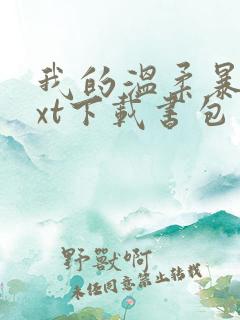 我的溫柔暴
xt下載書包
野獸啊
未经同意禁止转载